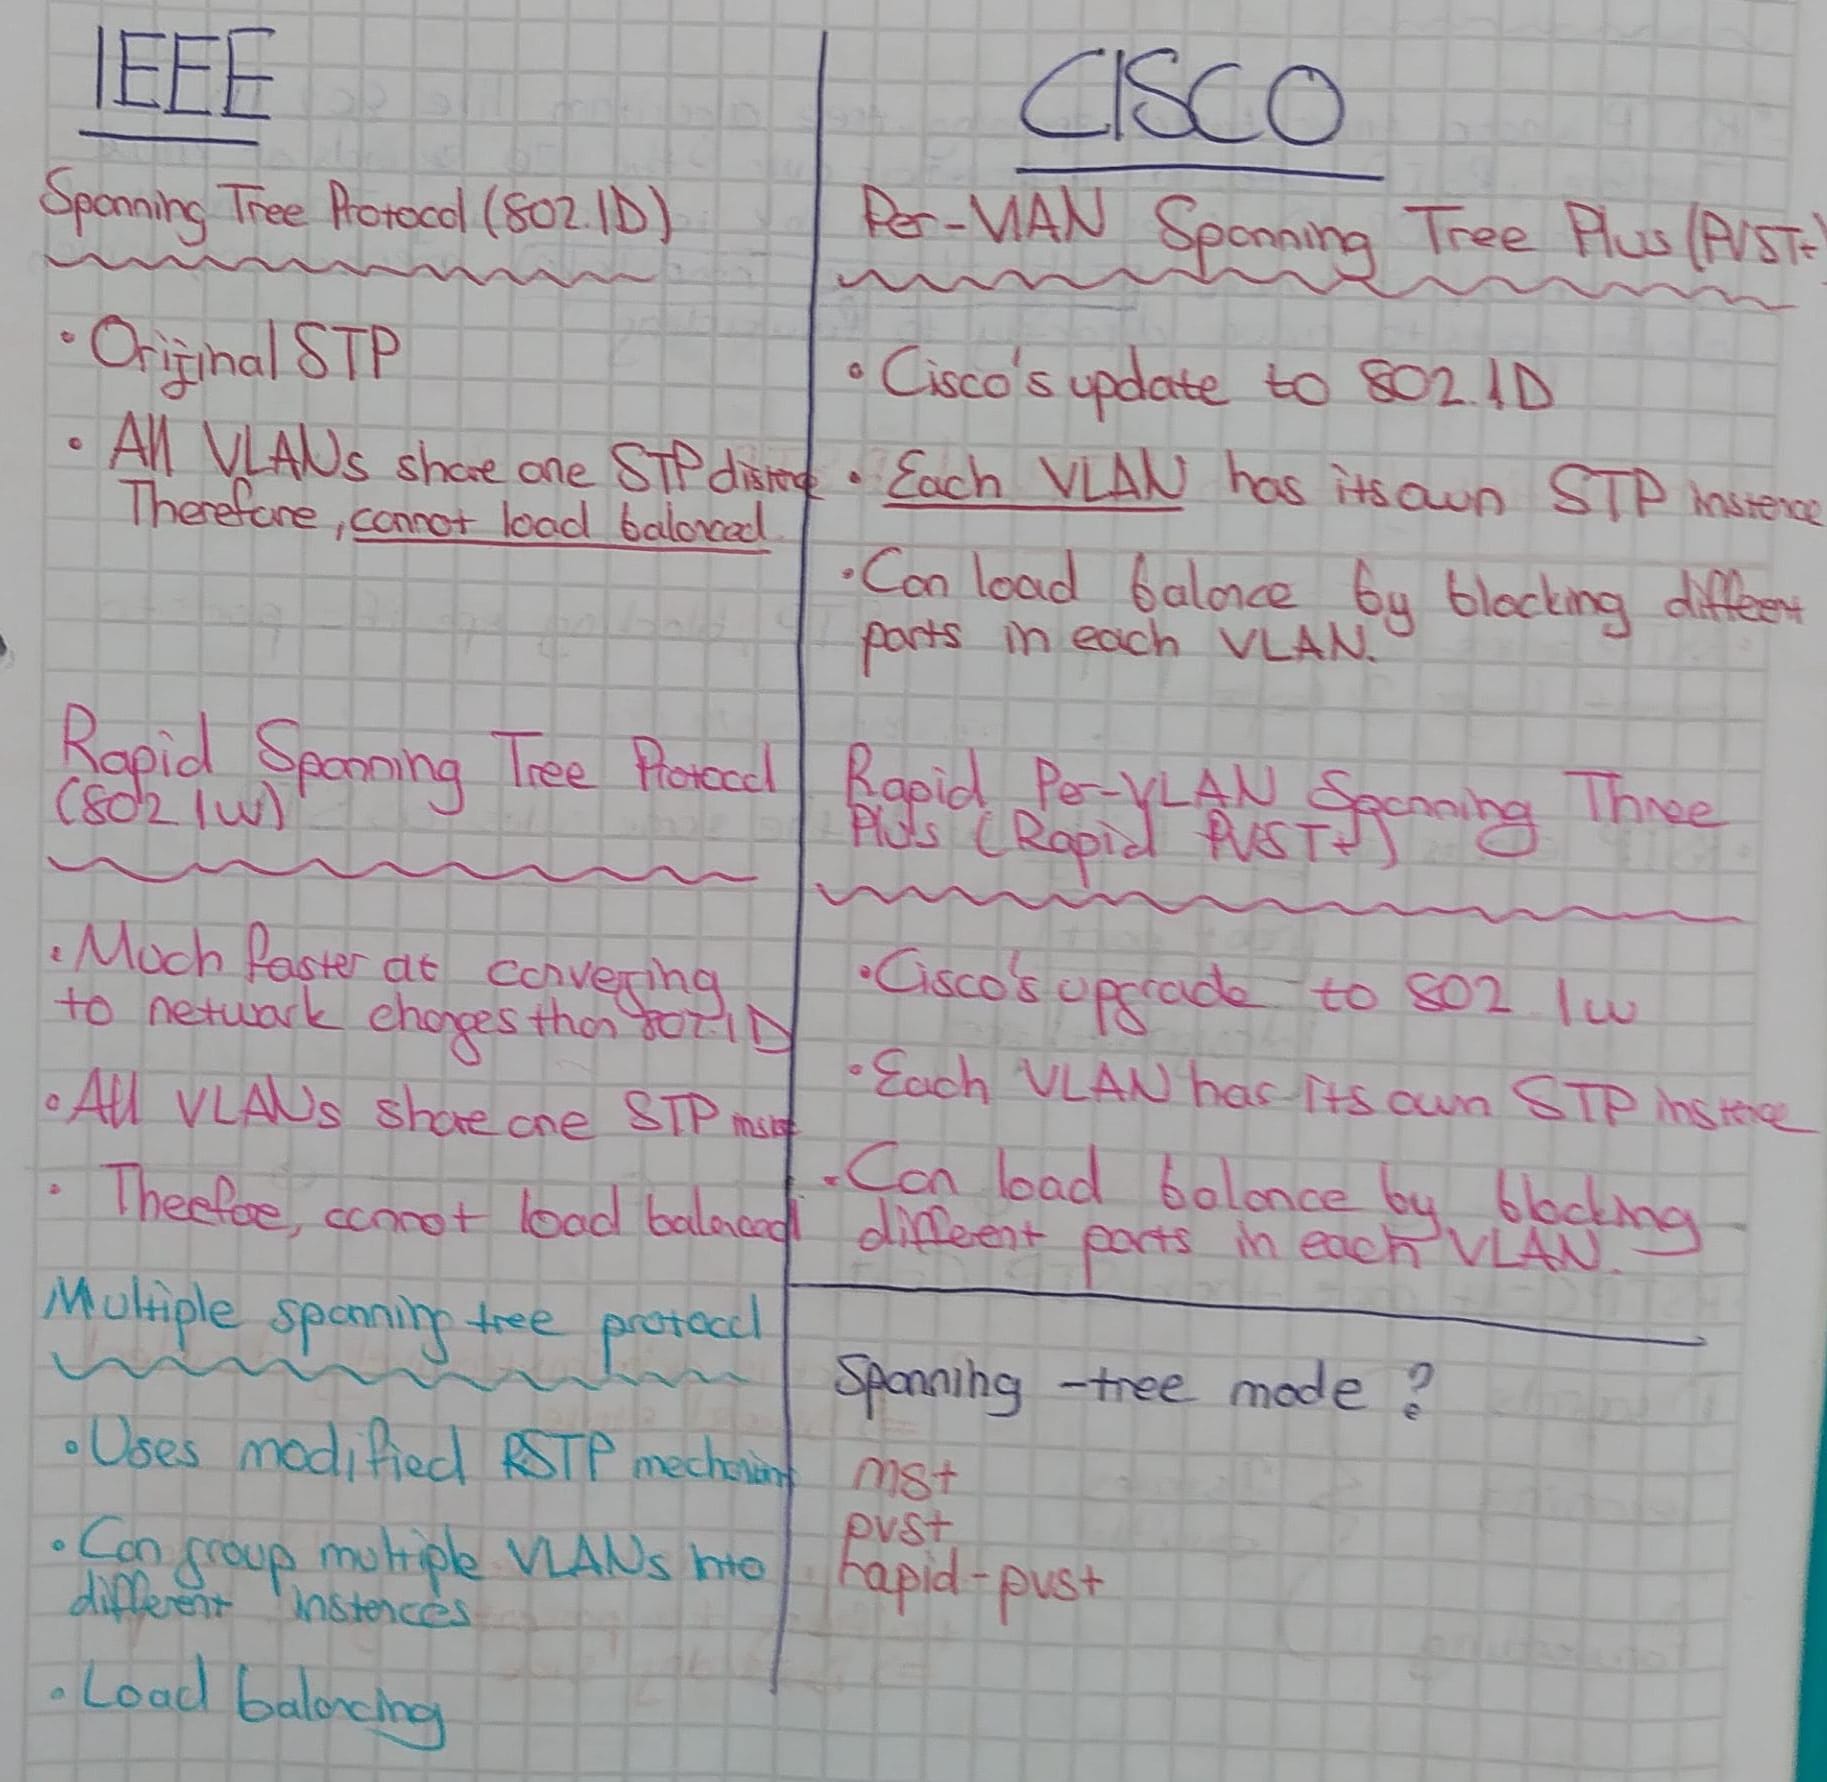 IEEE
Spanning Tree Protocol (802.1D)
• Original STP
• All VLANs share one STP
Therefore, cannot load balanced
Rapid Spanning Tree Protocol
(802.1w)
• Much faster at converging
to network changes than 802.1D
• All VLANs share one STP
• Therefore, cannot load balanced
Multiple spanning tree protocol
• Uses modified RSTP mechanism
• Can group multiple VLANs into
different instences
• Load balancing
CISCO
Per-VLAN Spanning Tree Plus (PVST+)
• Cisco's update to 802.1D
• Each VLAN has its own STP instence
• Can load balance by blocking different
ports in each VLAN.
Rapid Per-VLAN Spanning Three
Plus (Rapid PVST+)
• Cisco's upgrade to 802.1w
• Each VLAN has its own STP instence
• Can load balance by blocking
different ports in each VLAN.
Spanning-tree mode ?
mst
pvst
rapid-pvst